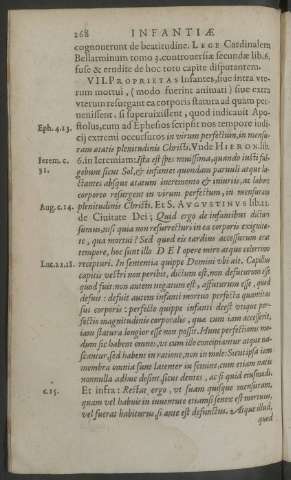 268 INFANTIÆ
cognouerunt de beatitudine. LEGE Cardinalem
Bellarminum tomo 4. controuersiæ secundæ lib. 6.
fuse & erudite de hoc toto capite disputantem.
VII. PROPRIETAS Infantes, siue intra vte-
rum mortui, (modo fuerint animati) siue extra
vterum resurgent ea corporis statura ad quam per-
uenissent, si superuixissent, quod indicauit Apo-
Eph. 4. 13. stolus, cum ad Ephesios scripsit nos tempore iudi-
cij extremi occursuros in virum perfectum, in mensu-
ram ætatis plenitudinis Christi. Vnde HIERON. lib.
Ierem. c. 6. in Ieremiam: Ista est spes nouissima, quando iusti ful-
31. gebunt sicut Sol, & infantes quondam paruuli atque la-
ctantes absque ætatum incremento & iniuriis, ac labore
corporis resurgent in virum perfectum, in mensuram
Aug. c. 14. plenitudinis Christi. Et S. AVGVSTINVS lib. 22.
de Ciuitate Dei; Quid ergo de infantibus dicturi
sumus, nisi quia non resurrecturi in ea corporis exiguita-
te, qua mortui? Sed quod eis tardius accessurum erat
tempore, hoc sunt illo DEI opere miro atque celerrimo
Luc. 21. 18. recepturi. In sententia quippe Domini vbi ait. Capillus
capitis vestri non peribit, dictum est, non defuturum esse
quod fuit: non autem negatum est, affuturum esse, quod
defuit: defuit autem infanti mortuo perfecta quantitas
sui corporis: perfecto quippe infanti deest vtique per-
fectio magnitudinis corporalis, quæ cum iam accesserit,
iam statura longior esse non possit. Hunc perfectionis mo-
dum sic habent omnes, vt cum illo concipiantur atque na-
scantur, sed habent in ratione, non in mole: Sicut ipsa iam
membra omnia sunt latenter in semine, cum etiam natis
nonnulla adhuc desint, sicut dentes, ac si quid eiusmodi.
c. 15. Et infra: Restat ergo, vt suam quisque mensuram,
quam vel habuit in iuuentute etiamsi senex est mortuus,
vel fuerat habiturus, si ante est defunctus. Atque illud,
quod